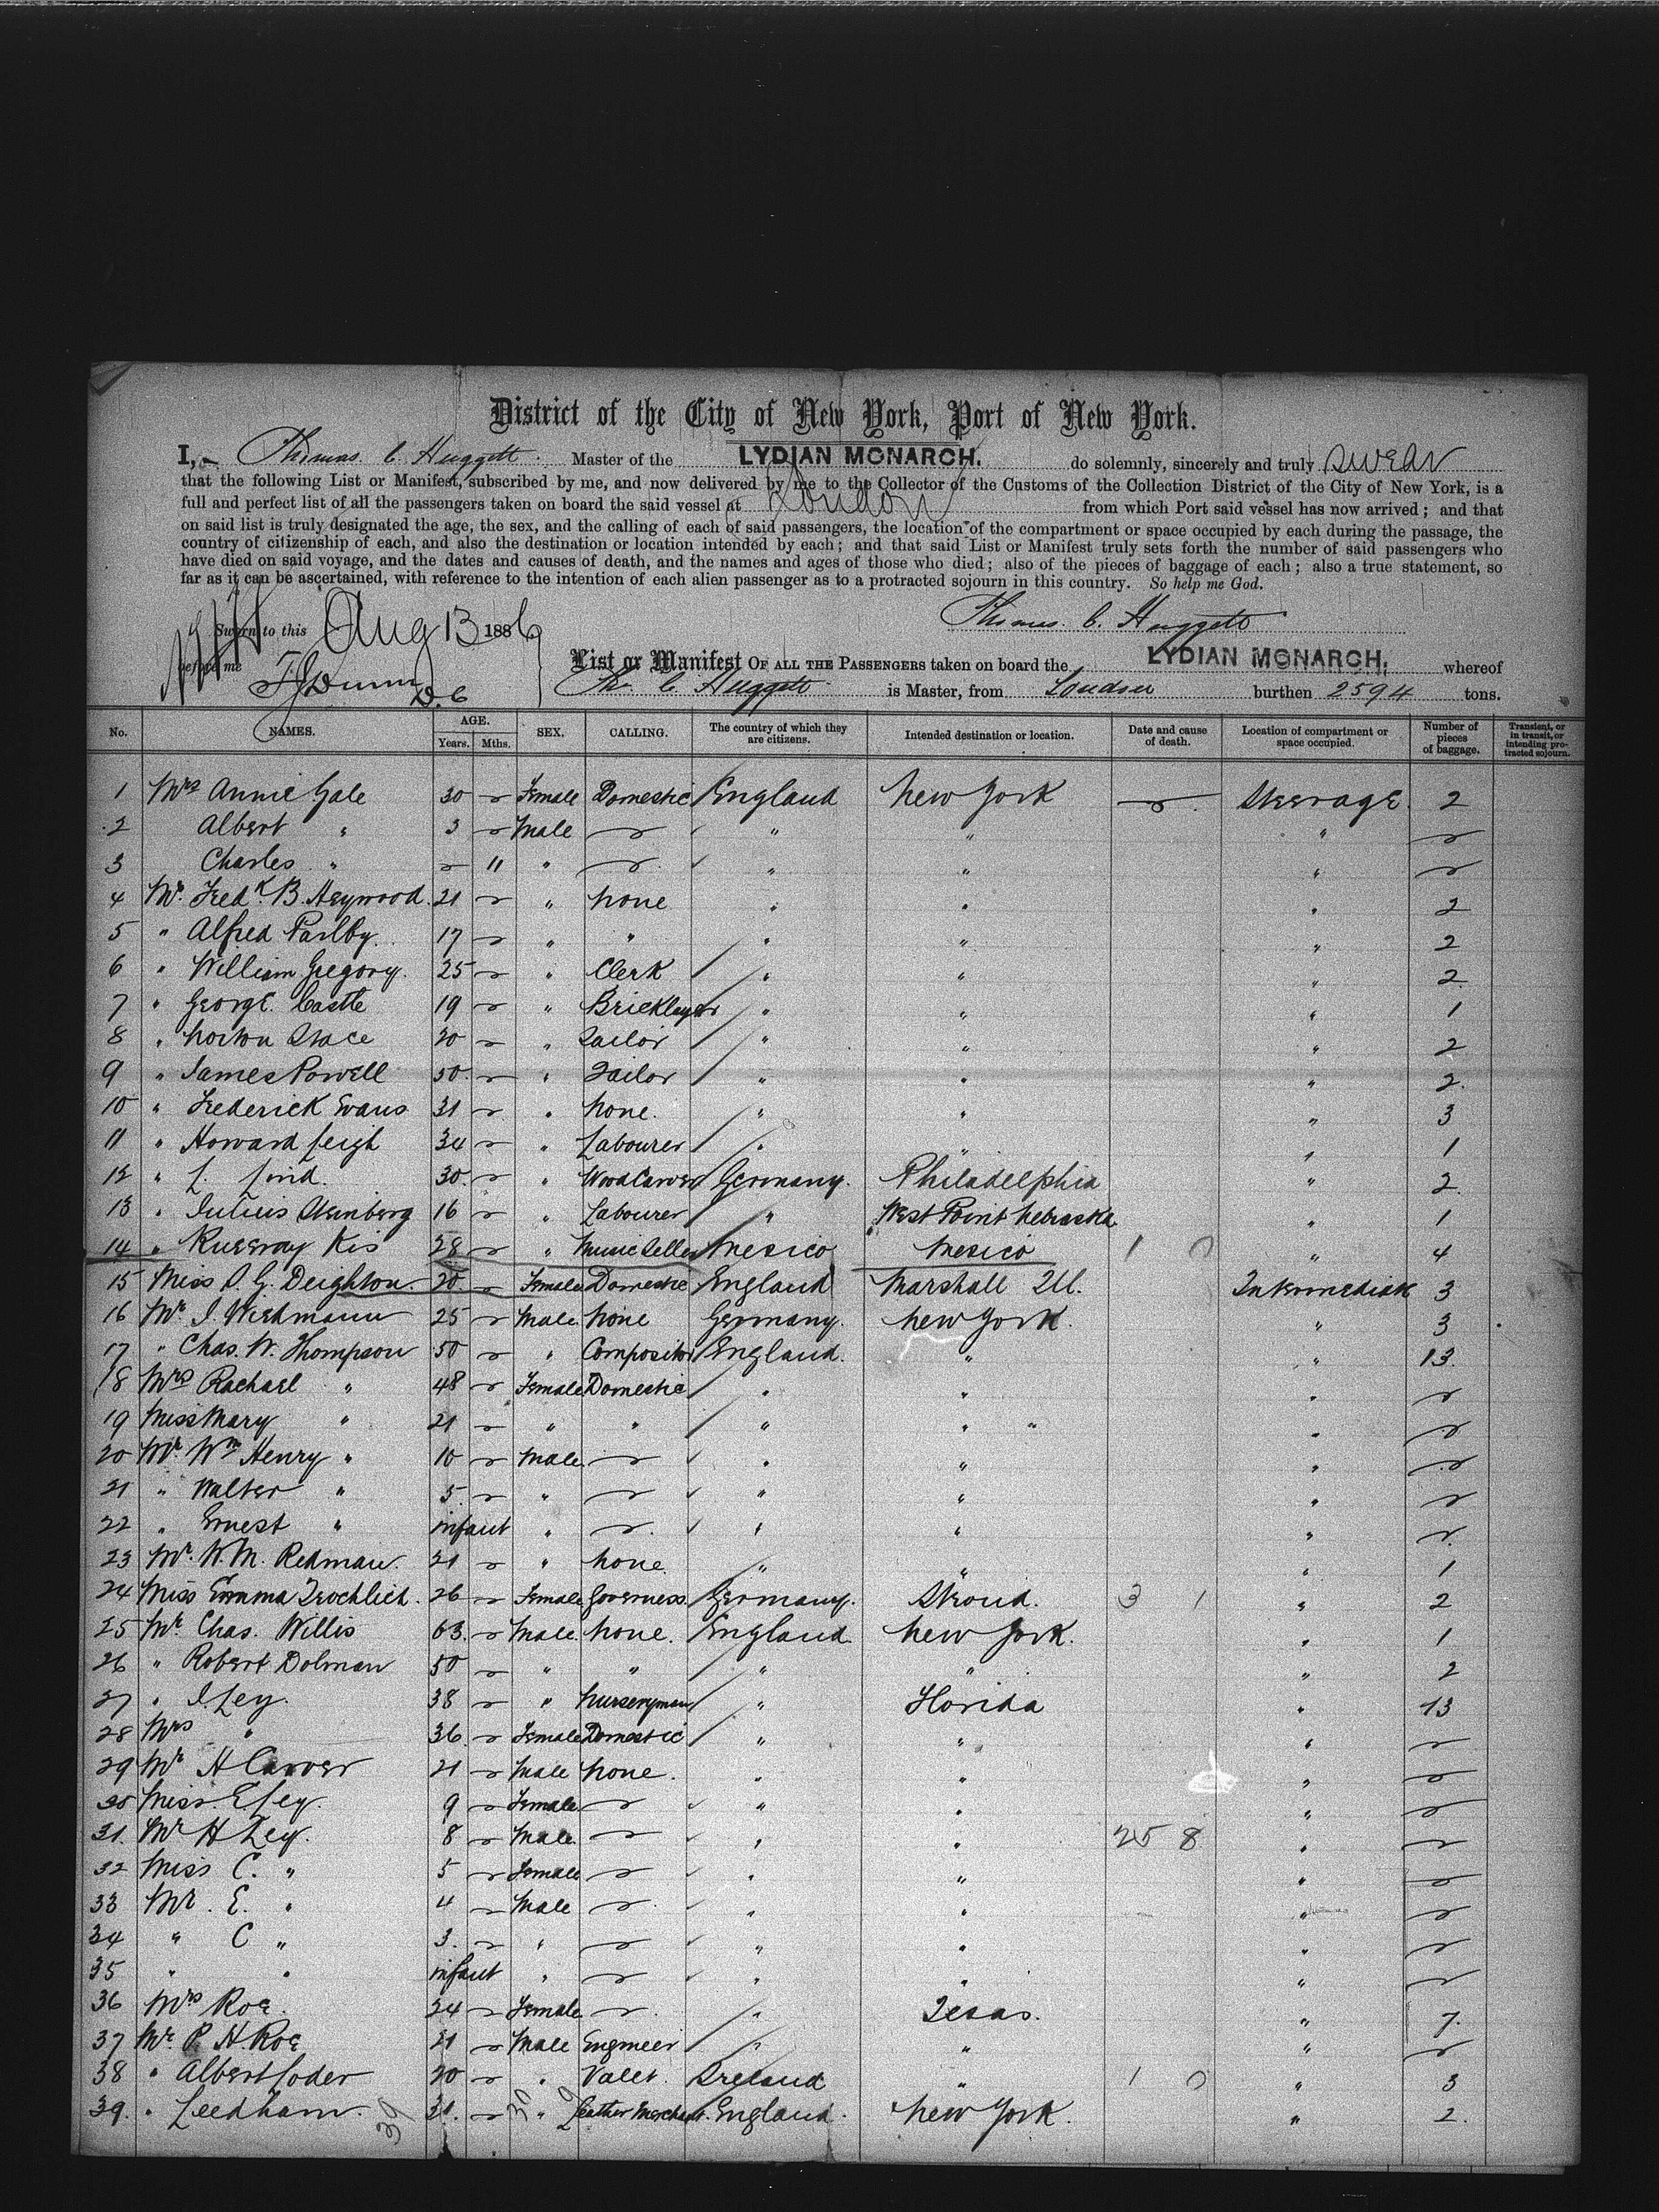 District of the City of New York, Port of New York.
I, Thomas C. Huggett. Master of the LYDIAN MONARCH. do solemnly, sincerely and truly swear
that the following List or Manifest, subscribed by me, and now delivered by me to the Collector of the Customs of the Collection District of the City of New York, is a
full and perfect list of all the passengers taken on board the said vessel at London from which Port said vessel has now arrived; and that
on said list is truly designated the age, the sex, and the calling of each of said passengers, the location of the compartment or space occupied by each during the passage, the
country of citizenship of each, and also the destination or location intended by each; and that said List or Manifest truly sets forth the number of said passengers who
have died on said voyage, and the dates and causes of death, and the names and ages of those who died; also of the pieces of baggage of each; also a true statement, so
far as it can be ascertained, with reference to the intention of each alien passenger as to a protracted sojourn in this country. So help me God.
Sworn to this Aug 13 1886 Thomas. C. Huggett
before me List or Manifest OF ALL THE PASSENGERS taken on board the LYDIAN MONARCH. whereof
D.C Th. C Huggett is Master, from London burthen 2594 tons.
No. NAMES. AGE. Years. Mths. SEX. CALLING. The country of which they are citizens. Intended destination or location. Date and cause of death. Location of compartment or space occupied. Number of pieces of baggage. Transient, or in transit, or intending protracted sojourn.
1 Mrs Annie Gale 30 Female Domestic England New York Steerage 2
2 Albert " 3 Male " " "
3 Charles " 11 " " " "
4 Mr. Fredk. B. Heywood. 21 " None " " " 2
5 " Alfred Parlby. 17 " " " " " 2
6 " William Gregory. 25 " Clerk " " " 2
7 " George Castle 19 " Bricklayer " " " 1
8 " Norton Stace 20 " Tailor " " " 2
9 " James Powell 50 " Tailor " " " 2.
10 " Frederick Evans 31 " None. " " " 3
11 " Howard Leigh 34 " Labourer " " " 1
12 " L. Lind. 30. " Wood Carver Germany. Philadelphia " 2.
13 " Julius Steinberg 16 " Labourer " West Point Nebraska " 1
14 " Kis 28 " Music Seller Mexico Mexico 1 0 " 4
15 Miss S. G. Deighton. 20 Female Domestic England Marshall Ill. Intermediate 3
16 Mr. J. Wiedmann 25 Male None Germany. New York. " 3
17 " Chas. W. Thompson 50 " Compositor England. " " 13.
18 Mrs Rachael " 48 Female Domestic " " "
19 Miss Mary " 21 " " " " " "
20 Mr. Wm Henry " 10 Male " " "
21 " Walter " 5. " " " "
22 " Ernest " infant " " " "
23 Mr. W. M. Redman. 21 " None " " " 1
24 Miss Emma 26 Female Governess Germany. Stroud. 3 1 " 2
25 Mr. Chas. Willis 63. Male. None. England. New York. " 1
26 " Robert Dolman 50 " " " " " 2
27 " J. Ley. 38 " Nurseryman " Florida " 13
28 Mrs " 36. Female Domestic " " "
29 Mr H Carver 21 Male None. " " "
30 Miss. E. Ley. 9 Female " " "
31. Mr H Ley. 8 Male " " 25 8 "
32 Miss C. " 5 Female " " "
33 Mr. E. " 4 Male " " "
34 " C " 3. " " " "
35 " " infant " " " "
36 Mrs Roe. 24 Female " Texas. " 7.
37 Mr. P. H. Roe 21 Male Engineer " " "
38 " Albert Loder 20 " Valet. Ireland " 1 0 " 3
39. " Leedham. 39 31. 30 " 9 Leather Merchant. England. New York. " 2.